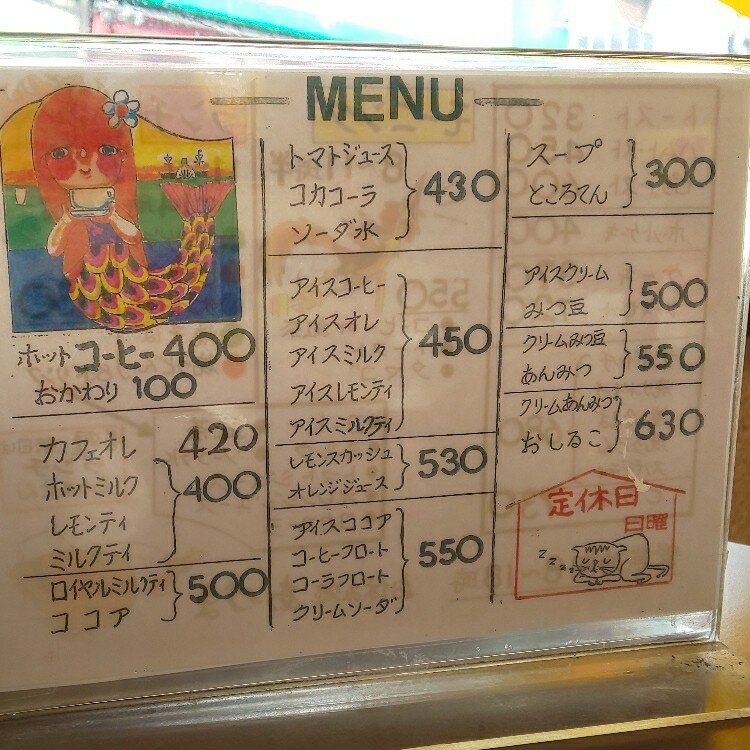 MENU
ホットコーヒー 400
おかわり 100
カフェオレ 420
ホットミルク
レモンティ
ミルクティ
400
ロイヤルミルクティ
ココア
500
トマトジュース
コカコーラ
ソーダ水
430
アイスコーヒー
アイスオレ
アイスミルク
アイスレモンティ
アイスミルクティ
450
レモンスカッシュ
オレンジジュース
530
アイスココア
コーヒーフロート
コーラフロート
クリームソーダ
550
スープ
ところてん
300
アイスクリーム
みつ豆
500
クリームみつ豆
あんみつ
550
クリームあんみつ
おしるこ
630
定休日
日曜
zzzz